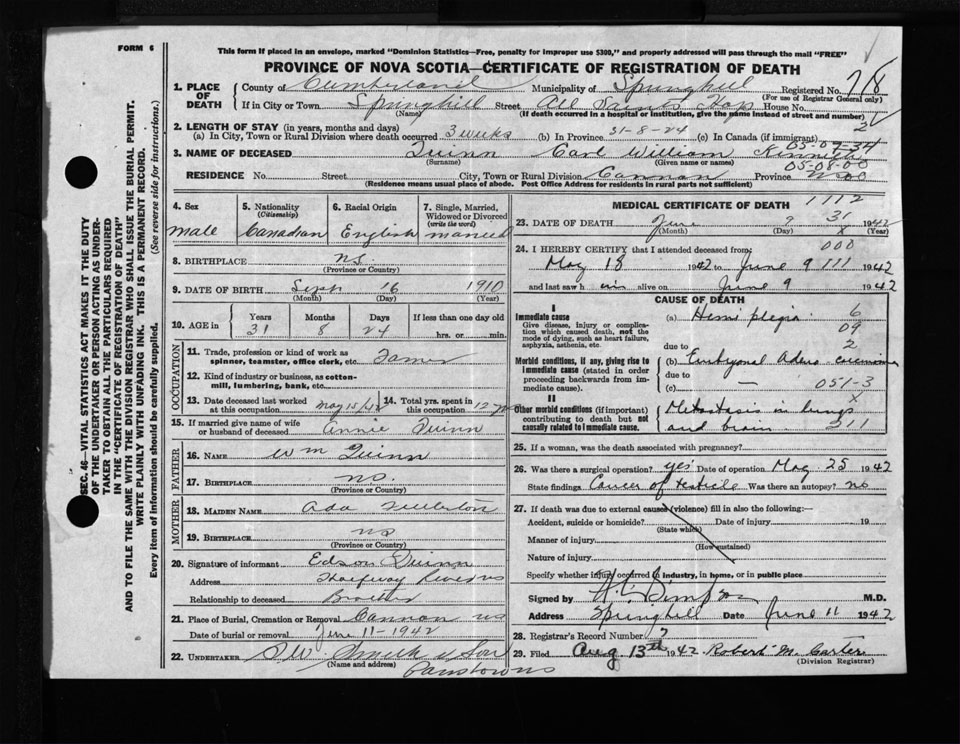 FORM 6
This form if placed in an envelope, marked "Dominion Statistics—Free, penalty for improper use $300," and properly addressed will pass through the mail "FREE"
PROVINCE OF NOVA SCOTIA—CERTIFICATE OF REGISTRATION OF DEATH
SEC. 46—VITAL STATISTICS ACT MAKES IT THE DUTY
OF THE UNDERTAKER OR PERSON ACTING AS UNDER-
TAKER TO OBTAIN ALL THE PARTICULARS REQUIRED
IN THE "CERTIFICATE OF REGISTRATION OF DEATH"
AND TO FILE THE SAME WITH THE DIVISION REGISTRAR WHO SHALL ISSUE THE BURIAL PERMIT.
WRITE PLAINLY WITH UNFADING INK. THIS IS A PERMANENT RECORD.
Every item of information should be carefully supplied. (See reverse side for instructions.)
1. PLACE OF DEATH County of Cumberland Municipality of Springhill Registered No. 718
(For use of Registrar General only)
If in City or Town Springhill Street All Saints Hosp House No.
(Name) (If death occurred in a hospital or institution, give the name instead of street and number)
2. LENGTH OF STAY (in years, months and days)
(a) In City, Town or Rural Division where death occurred 3 weeks (b) In Province 31-8-24 (c) In Canada (if immigrant)
3. NAME OF DECEASED Quinn Carl William Kenneth
(Surname) (Given name or names)
RESIDENCE No. Street City, Town or Rural Division Cannan Province
(Residence means usual place of abode. Post Office Address for residents in rural parts not sufficient)
4. Sex male
5. Nationality (Citizenship) Canadian
6. Racial Origin English
7. Single, Married, Widowed or Divorced (write the word) married
8. BIRTHPLACE ns
(Province or Country)
9. DATE OF BIRTH Sept 16 1910
(Month) (Day) (Year)
10. AGE in Years 31 Months 8 Days 24 If less than one day old hrs. or min.
OCCUPATION
11. Trade, profession or kind of work as spinner, teamster, office clerk, etc. Farmer
12. Kind of industry or business, as cotton-mill, lumbering, bank, etc.
13. Date deceased last worked at this occupation May 15/42 14. Total yrs. spent in this occupation 12 yr
15. If married give name of wife or husband of deceased Annie Quinn
FATHER
16. NAME Wm Quinn
17. BIRTHPLACE ns.
(Province or Country)
MOTHER
18. MAIDEN NAME Ada
19. BIRTHPLACE ns
(Province or Country)
20. Signature of informant Edson Quinn
Address Halfway River ns
Relationship to deceased Brother
21. Place of Burial, Cremation or Removal Cannan ns
Date of burial or removal June 11-1942
22. UNDERTAKER Smith & Son
(Name and address)
MEDICAL CERTIFICATE OF DEATH 1112
23. DATE OF DEATH June 9 1942
(Month) (Day) (Year)
31
24. I HEREBY CERTIFY that I attended deceased from:
000
May 18 1942 to June 9 111 1942
and last saw him alive on June 9 1942
CAUSE OF DEATH
I
Immediate cause
Give disease, injury or complication which caused death, not the mode of dying, such as heart failure, asphyxia, asthenia, etc.
(a) Hemiplegia 6
09
due to 2
Morbid conditions, if any, giving rise to immediate cause (stated in order proceeding backwards from immediate cause).
(b) Embryonal Adeno carcinoma
due to
(c) — 051-3
II
Other morbid conditions (if important) contributing to death but not causally related to immediate cause.
x
Metastasis in lungs
and brain 311
25. If a woman, was the death associated with pregnancy?
26. Was there a surgical operation? yes Date of operation May 25 1942
State findings Cancer of testicle Was there an autopsy? no
27. If death was due to external causes (violence) fill in also the following:—
Accident, suicide or homicide? Date of injury 19
(State which)
Manner of injury
(How sustained)
Nature of injury
Specify whether injury occurred in industry, in home, or in public place
Signed by Simpson M.D.
Address Springhill Date June 11 1942
28. Registrar's Record Number 7
29. Filed Aug 13th 1942 Robert M. Carter
(Division Registrar)